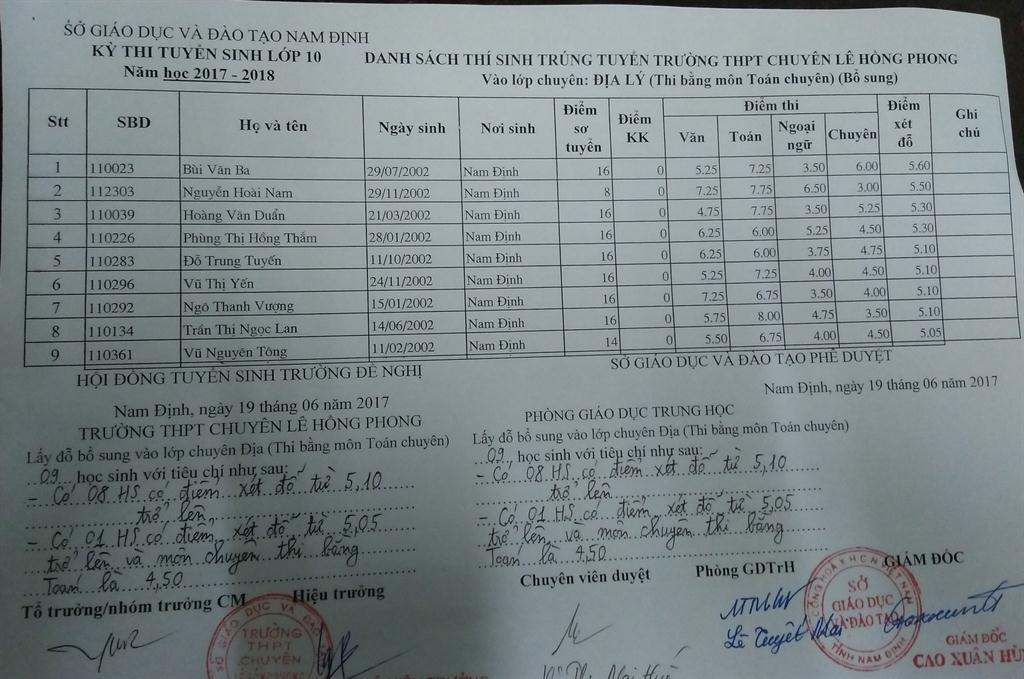 SỞ GIÁO DỤC VÀ ĐÀO TẠO NAM ĐỊNH
KỲ THI TUYỂN SINH LỚP 10
Năm học 2017 - 2018
DANH SÁCH THÍ SINH TRÚNG TUYỂN TRƯỜNG THPT CHUYÊN LÊ HỒNG PHONG
Vào lớp chuyên: ĐỊA LÝ (Thi bằng môn Toán chuyên) (Bổ sung)
Stt SBD Họ và tên Ngày sinh Nơi sinh Điểm sơ tuyển Điểm KK Điểm thi Văn Toán Ngoại ngữ Chuyên Điểm xét đỗ Ghi chú
1 110023 Bùi Văn Ba 29/07/2002 Nam Định 16 0 5.25 7.25 3.50 6.00 5.60
2 112303 Nguyễn Hoài Nam 29/11/2002 Nam Định 8 0 7.25 7.75 6.50 3.00 5.50
3 110039 Hoàng Văn Duẩn 21/03/2002 Nam Định 16 0 4.75 7.75 3.50 5.25 5.30
4 110226 Phùng Thị Hồng Thắm 28/01/2002 Nam Định 16 0 6.25 6.00 5.25 4.50 5.30
5 110283 Đỗ Trung Tuyến 11/10/2002 Nam Định 16 0 6.25 6.00 3.75 4.75 5.10
6 110296 Vũ Thị Yến 24/11/2002 Nam Định 16 0 5.25 7.25 4.00 4.50 5.10
7 110292 Ngô Thanh Vượng 15/01/2002 Nam Định 16 0 7.25 6.75 3.50 4.00 5.10
8 110134 Trần Thị Ngọc Lan 14/06/2002 Nam Định 16 0 5.75 8.00 4.75 3.50 5.10
9 110361 Vũ Nguyên Tông 11/02/2002 Nam Định 14 0 5.50 6.75 4.00 4.50 5.05
HỘI ĐỒNG TUYỂN SINH TRƯỜNG ĐỀ NGHỊ
Nam Định, ngày 19 tháng 06 năm 2017
TRƯỜNG THPT CHUYÊN LÊ HỒNG PHONG
Lấy đỗ bổ sung vào lớp chuyên Địa (Thi bằng môn Toán chuyên)
09 học sinh với tiêu chí như sau:
- Có 08 HS có điểm xét đỗ từ 5,10
trở lên
- Có 01 HS có điểm xét đỗ từ 5,05
trở lên và môn chuyên thi bằng
Toán là 4,50
Tổ trưởng/nhóm trưởng CM Hiệu trưởng
SỞ GIÁO DỤC VÀ ĐÀO TẠO
TRƯỜNG
THPT
CHUYÊN
SỞ GIÁO DỤC VÀ ĐÀO TẠO PHÊ DUYỆT
Nam Định, ngày 19 tháng 06 năm 2017
PHÒNG GIÁO DỤC TRUNG HỌC
Lấy đỗ bổ sung vào lớp chuyên Địa (Thi bằng môn Toán chuyên)
09 học sinh với tiêu chí như sau:
- Có 08 HS có điểm xét đỗ từ 5,10
trở lên
- Có 01 HS có điểm xét đỗ từ 5,05
trở lên và môn chuyên thi bằng
Toán là 4,50
Chuyên viên duyệt Phòng GDTrH GIÁM ĐỐC
Lê Tuyết Mai
SỞ
GIÁO DỤC
VÀ ĐÀO TẠO
TỈNH NAM ĐỊNH
GIÁM ĐỐC
CAO XUÂN